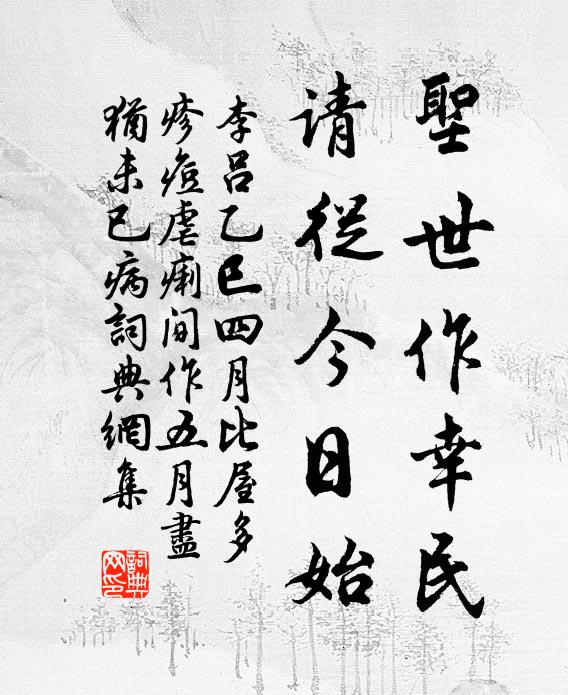 聖世作幸民
请從今日始
李呂乙巳四月比屋多
疹痘虐痢间作五月盡
猶未已病詞典網集
詞典网印